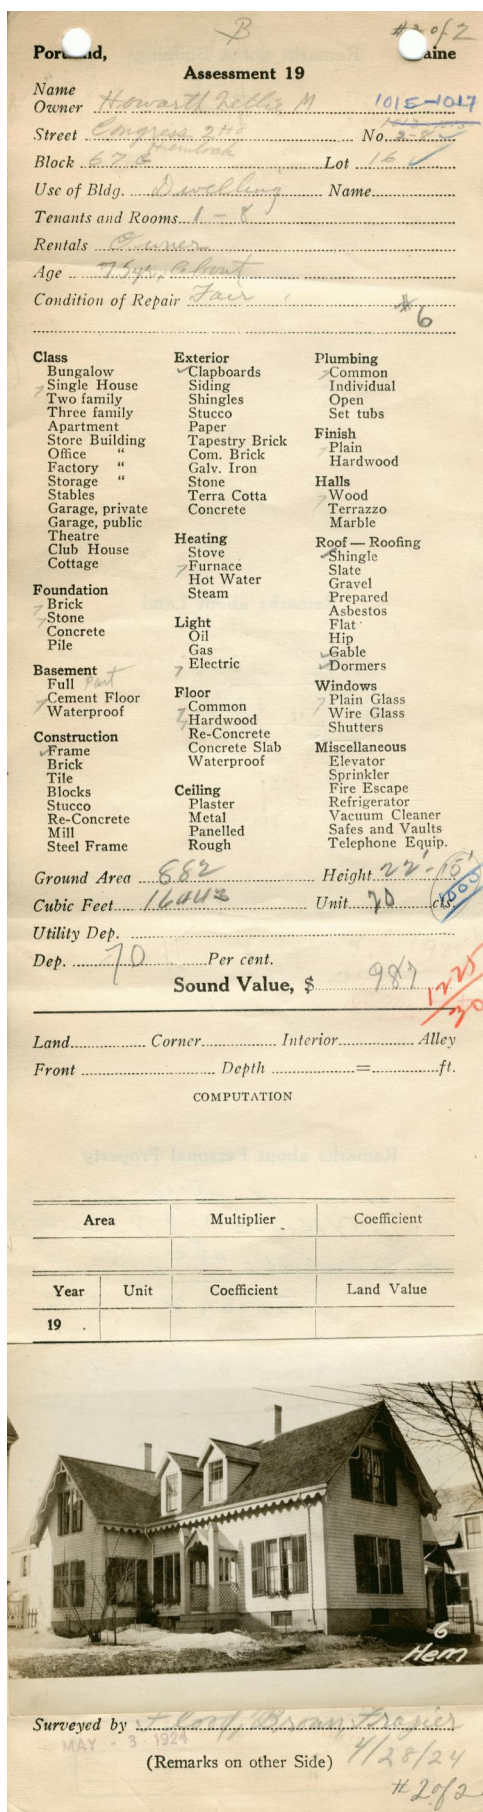 B
#2 of 2
Portland, Maine
Assessment 19
Name
Owner Howarth Nellie M
1015-1017
Street Congress 2Ho No. 2-8 ✓
Hemlock
Block 67 E Lot 16 ✓
Use of Bldg. Dwelling Name
Tenants and Rooms 1 - 8
Rentals Owner
Age 75 yrs. About
Condition of Repair Fair
#6
Class
Bungalow
Single House
Two family
Three family
Apartment
Store Building
Office "
Factory "
Storage "
Stables
Garage, private
Garage, public
Theatre
Club House
Cottage
Foundation
Brick
Stone
Concrete
Pile
Basement
Full Part
Cement Floor
Waterproof
Construction
Frame
Brick
Tile
Blocks
Stucco
Re-Concrete
Mill
Steel Frame
Exterior
Clapboards
Siding
Shingles
Stucco
Paper
Tapestry Brick
Com. Brick
Galv. Iron
Stone
Terra Cotta
Concrete
Heating
Stove
Furnace
Hot Water
Steam
Light
Oil
Gas
Electric
Floor
Common
Hardwood
Re-Concrete
Concrete Slab
Waterproof
Ceiling
Plaster
Metal
Panelled
Rough
Plumbing
Common
Individual
Open
Set tubs
Finish
Plain
Hardwood
Halls
Wood
Terrazzo
Marble
Roof — Roofing
Shingle
Slate
Gravel
Prepared
Asbestos
Flat
Hip
Gable
Dormers
Windows
Plain Glass
Wire Glass
Shutters
Miscellaneous
Elevator
Sprinkler
Fire Escape
Refrigerator
Vacuum Cleaner
Safes and Vaults
Telephone Equip.
Ground Area 882 Height 22'-15'
Cubic Feet 16443 Unit 20 cts.
1000
Utility Dep.
Dep. 70 Per cent.
Sound Value, $ 987
1225
30
Land Corner Interior Alley
Front Depth = ft.
COMPUTATION
Area Multiplier Coefficient
Year Unit Coefficient Land Value
19
6
Hem
Surveyed by Brown Frazier
MAY - 3 1924
4/28/24
(Remarks on other Side)
#2 of 2